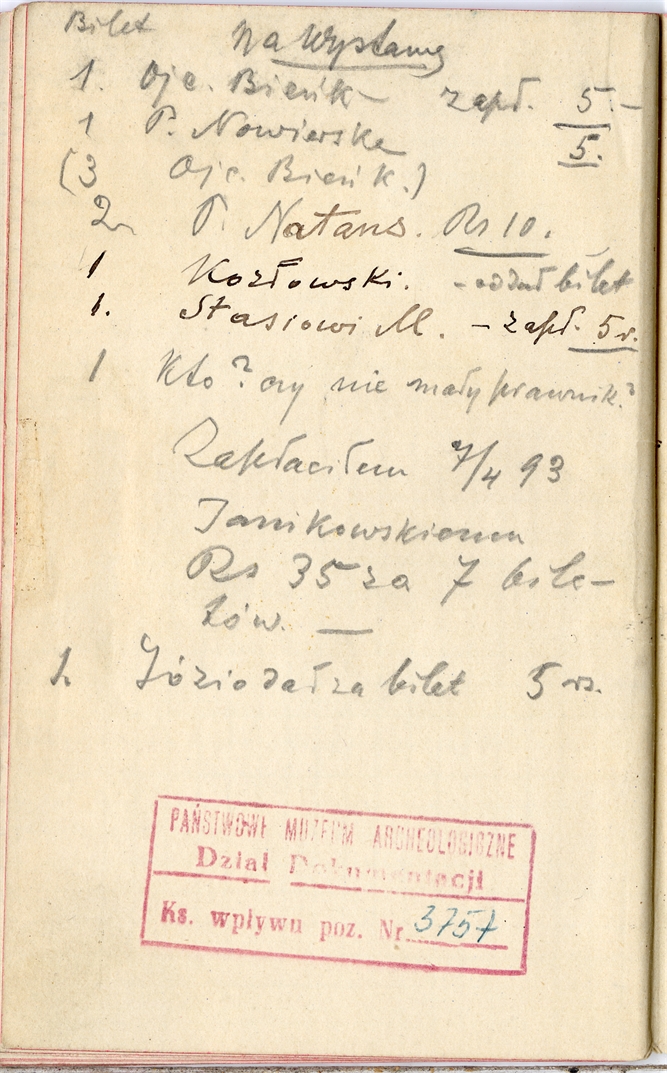 Bilet na Wystawę
1. Ojc. Bieńk – zapł. 5.–
1 P. Nowierska 5.
(3 Ojc. Bieńk.)
2 P. Natans. Rs 10.
1 Kozłowski. – oddał bilet
1. Stasiowi M. – zapł. 5 r.
1 Kto? czy nie mały prawnik?
Zapłaciłem 7/4 93
Janikowskiemu
Rs 35 za 7 bile-
tów. —
1. Józio dał za bilet 5 rs.
PAŃSTWOWE MUZEUM ARCHEOLOGICZNE
Dział Dokumentacji
Ks. wpływu poz. Nr. 3757